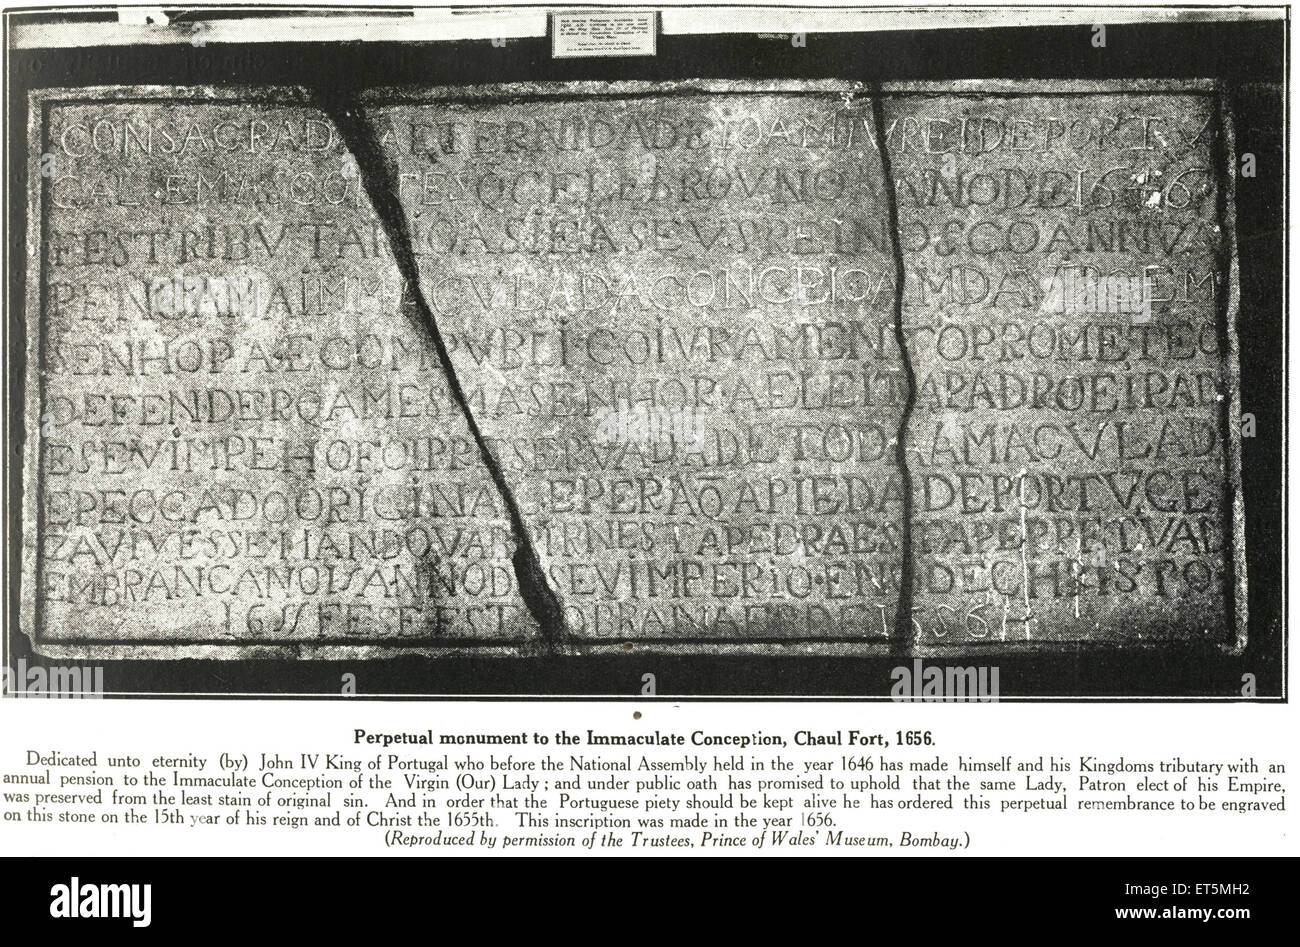 CONSAGRAD AETERNIDADE IOAM IV REI DE PORTV
GAL EMAS CORTESQ CELEBROV NO ANNO DE 1646
FES TRIBVTARIOASIEASEVSREINOSCOANNVA
PENSAMAIMMACVLADACONCEICAMDAVIRGEM
SENHORAECOMPVBLICOIVRAMENTOPROMETEO
DEFENDERQAMESMASENHORAELEITAPADROEIPAD
ESEVIMPEHOFOIPRESERVADADETODAAMACVLAD
EPECCADOORIGINALEPERAQAPIEDADEPORTVGE
ZAVIVESSEMANDOVABRIRNESTAPEDRAESTAPERPETVAL
EMBRANCANOISANNODESEVIMPERIO·ENODECHRISTO
1655FESEESTAOBRANAESDE1656
Perpetual monument to the Immaculate Conception, Chaul Fort, 1656.
Dedicated unto eternity (by) John IV King of Portugal who before the National Assembly held in the year 1646 has made himself and his Kingdoms tributary with an
annual pension to the Immaculate Conception of the Virgin (Our) Lady ; and under public oath has promised to uphold that the same Lady, Patron elect of his Empire,
was preserved from the least stain of original sin. And in order that the Portuguese piety should be kept alive he has ordered this perpetual remembrance to be engraved
on this stone on the 15th year of his reign and of Christ the 1655th. This inscription was made in the year 1656.
(Reproduced by permission of the Trustees, Prince of Wales' Museum, Bombay.)
alamy
alamy
Image ID: ET5MH2
www.alamy.com